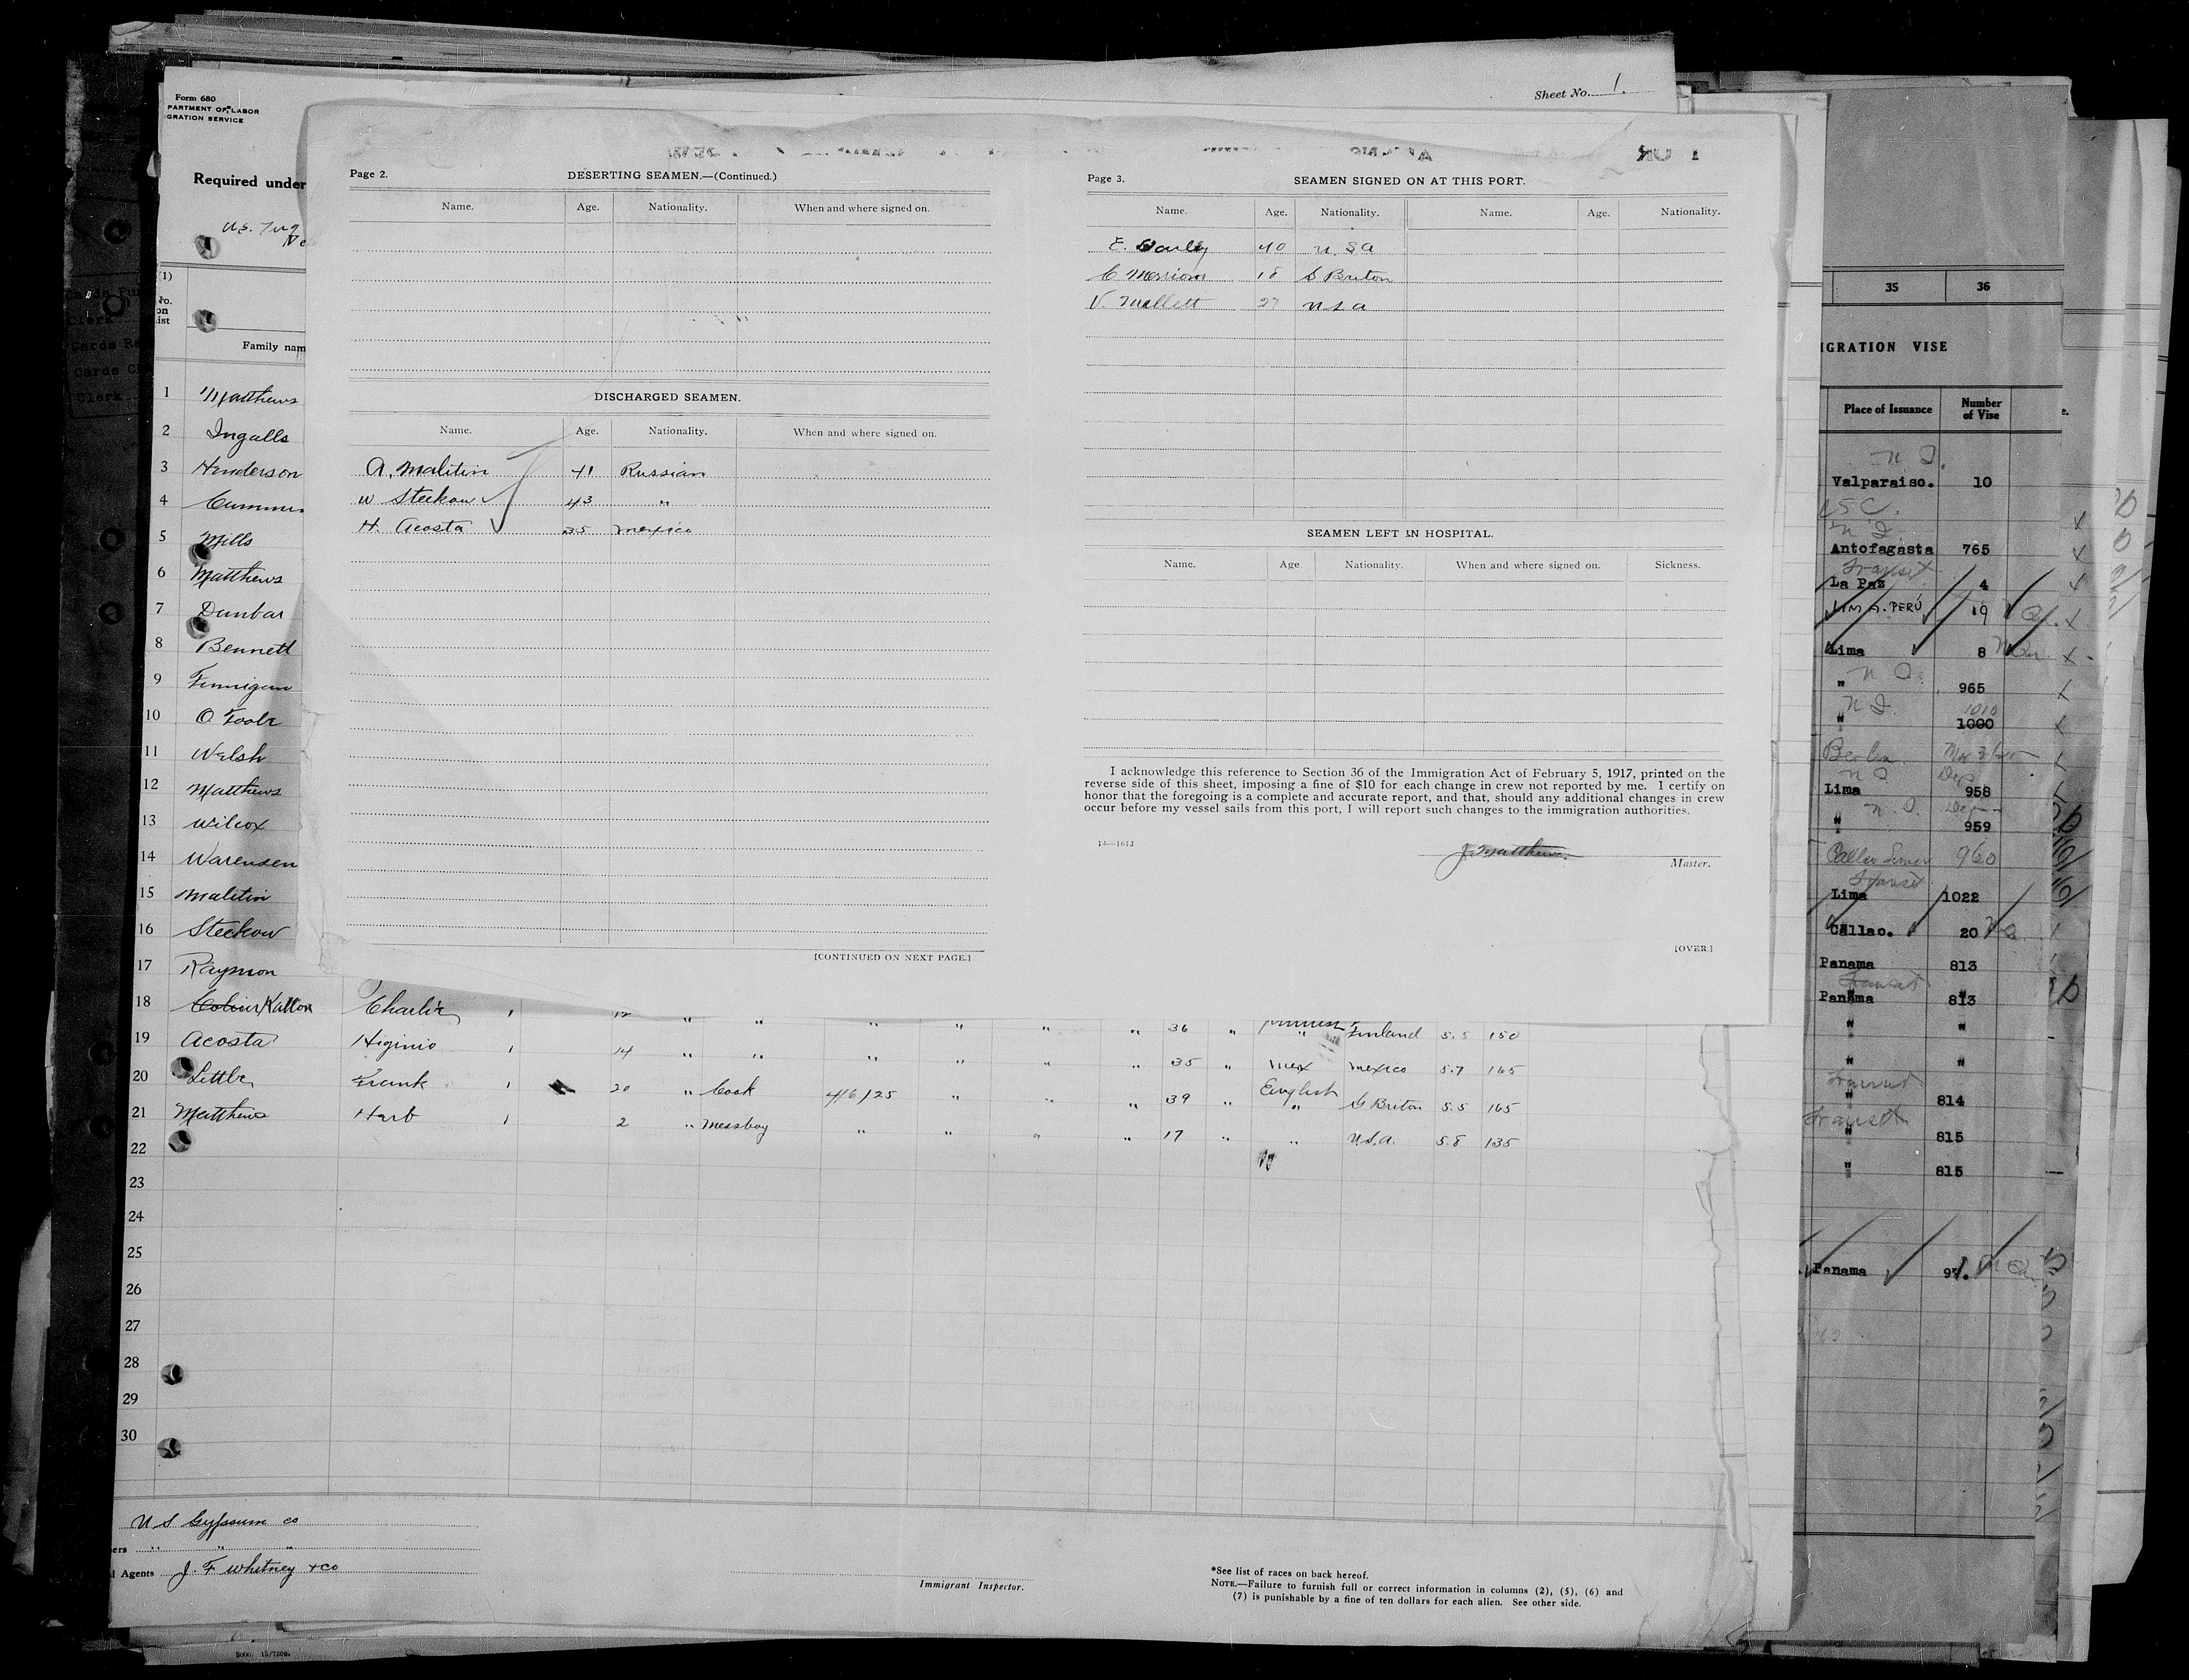 Sheet No. 1.
Form 680
PARTMENT OF LABOR
GRATION SERVICE
Required under
U.S. Tug
(1)
No.
on
list
Family nam
1 Matthews
2 Ingalls
3 Henderson
4 Cummin
5 Mills
6 Matthews
7 Dunbar
8 Bennett
9 Finnigan
10 O Toole
11 Welsh
12 Matthews
13 Wilcox
14 Warensen
15 Malitin
16 Steckow
17 Raymon
18 Kallon Charlie 1 12 " " " " " " 36 " " Finland 5.5 150
19 Acosta Higinio 1 14 " " " " " " 35 " Mex Mexico 5.7 165
20 Little Frank 1 20 " Cook 4/6/25 " " " 39 " English G Briton 5.5 165
21 Matthews Harb 1 2 " Messboy " " " " 17 " " U.S.A. 5.8 135
22
23
24
25
26
27
28
29
30
U S Gypsum co
ers " " "
l Agents J. F Whitney & co
Immigrant Inspector.
*See list of races on back hereof.
NOTE.—Failure to furnish full or correct information in columns (2), (5), (6) and
(7) is punishable by a fine of ten dollars for each alien. See other side.
Page 2.
DESERTING SEAMEN.—(Continued.)
Name. Age. Nationality. When and where signed on.
DISCHARGED SEAMEN.
Name. Age. Nationality. When and where signed on.
A. Malitin 41 Russian
W Steckow 43 "
H. Acosta 35 Mexico
[CONTINUED ON NEXT PAGE.]
Page 3.
SEAMEN SIGNED ON AT THIS PORT.
Name. Age. Nationality. Name. Age. Nationality.
E. 40 U.S.A
C 18 G Briton
V. Mallett 27 U S a
SEAMEN LEFT IN HOSPITAL.
Name. Age. Nationality. When and where signed on. Sickness.
I acknowledge this reference to Section 36 of the Immigration Act of February 5, 1917, printed on the
reverse side of this sheet, imposing a fine of $10 for each change in crew not reported by me. I certify on
honor that the foregoing is a complete and accurate report, and that, should any additional changes in crew
occur before my vessel sails from this port, I will report such changes to the immigration authorities.
14—1613
J. Matthews
Master.
[OVER.]
35 36
IGRATION VISE
Place of Issuance Number of Vise
Valparaiso. 10
Antofagasta 765
Transit
La Paz 4
LIMA. PERÚ 19
Lima 8
" 965
" 1000 1010
Berlin
Lima 958
" 959
960
Transit
Lima 1022
Callao. 20
Panama 813
Transit
Panama 813
" "
" "
Transit
" 814
Transit
" 815
" 815
Panama